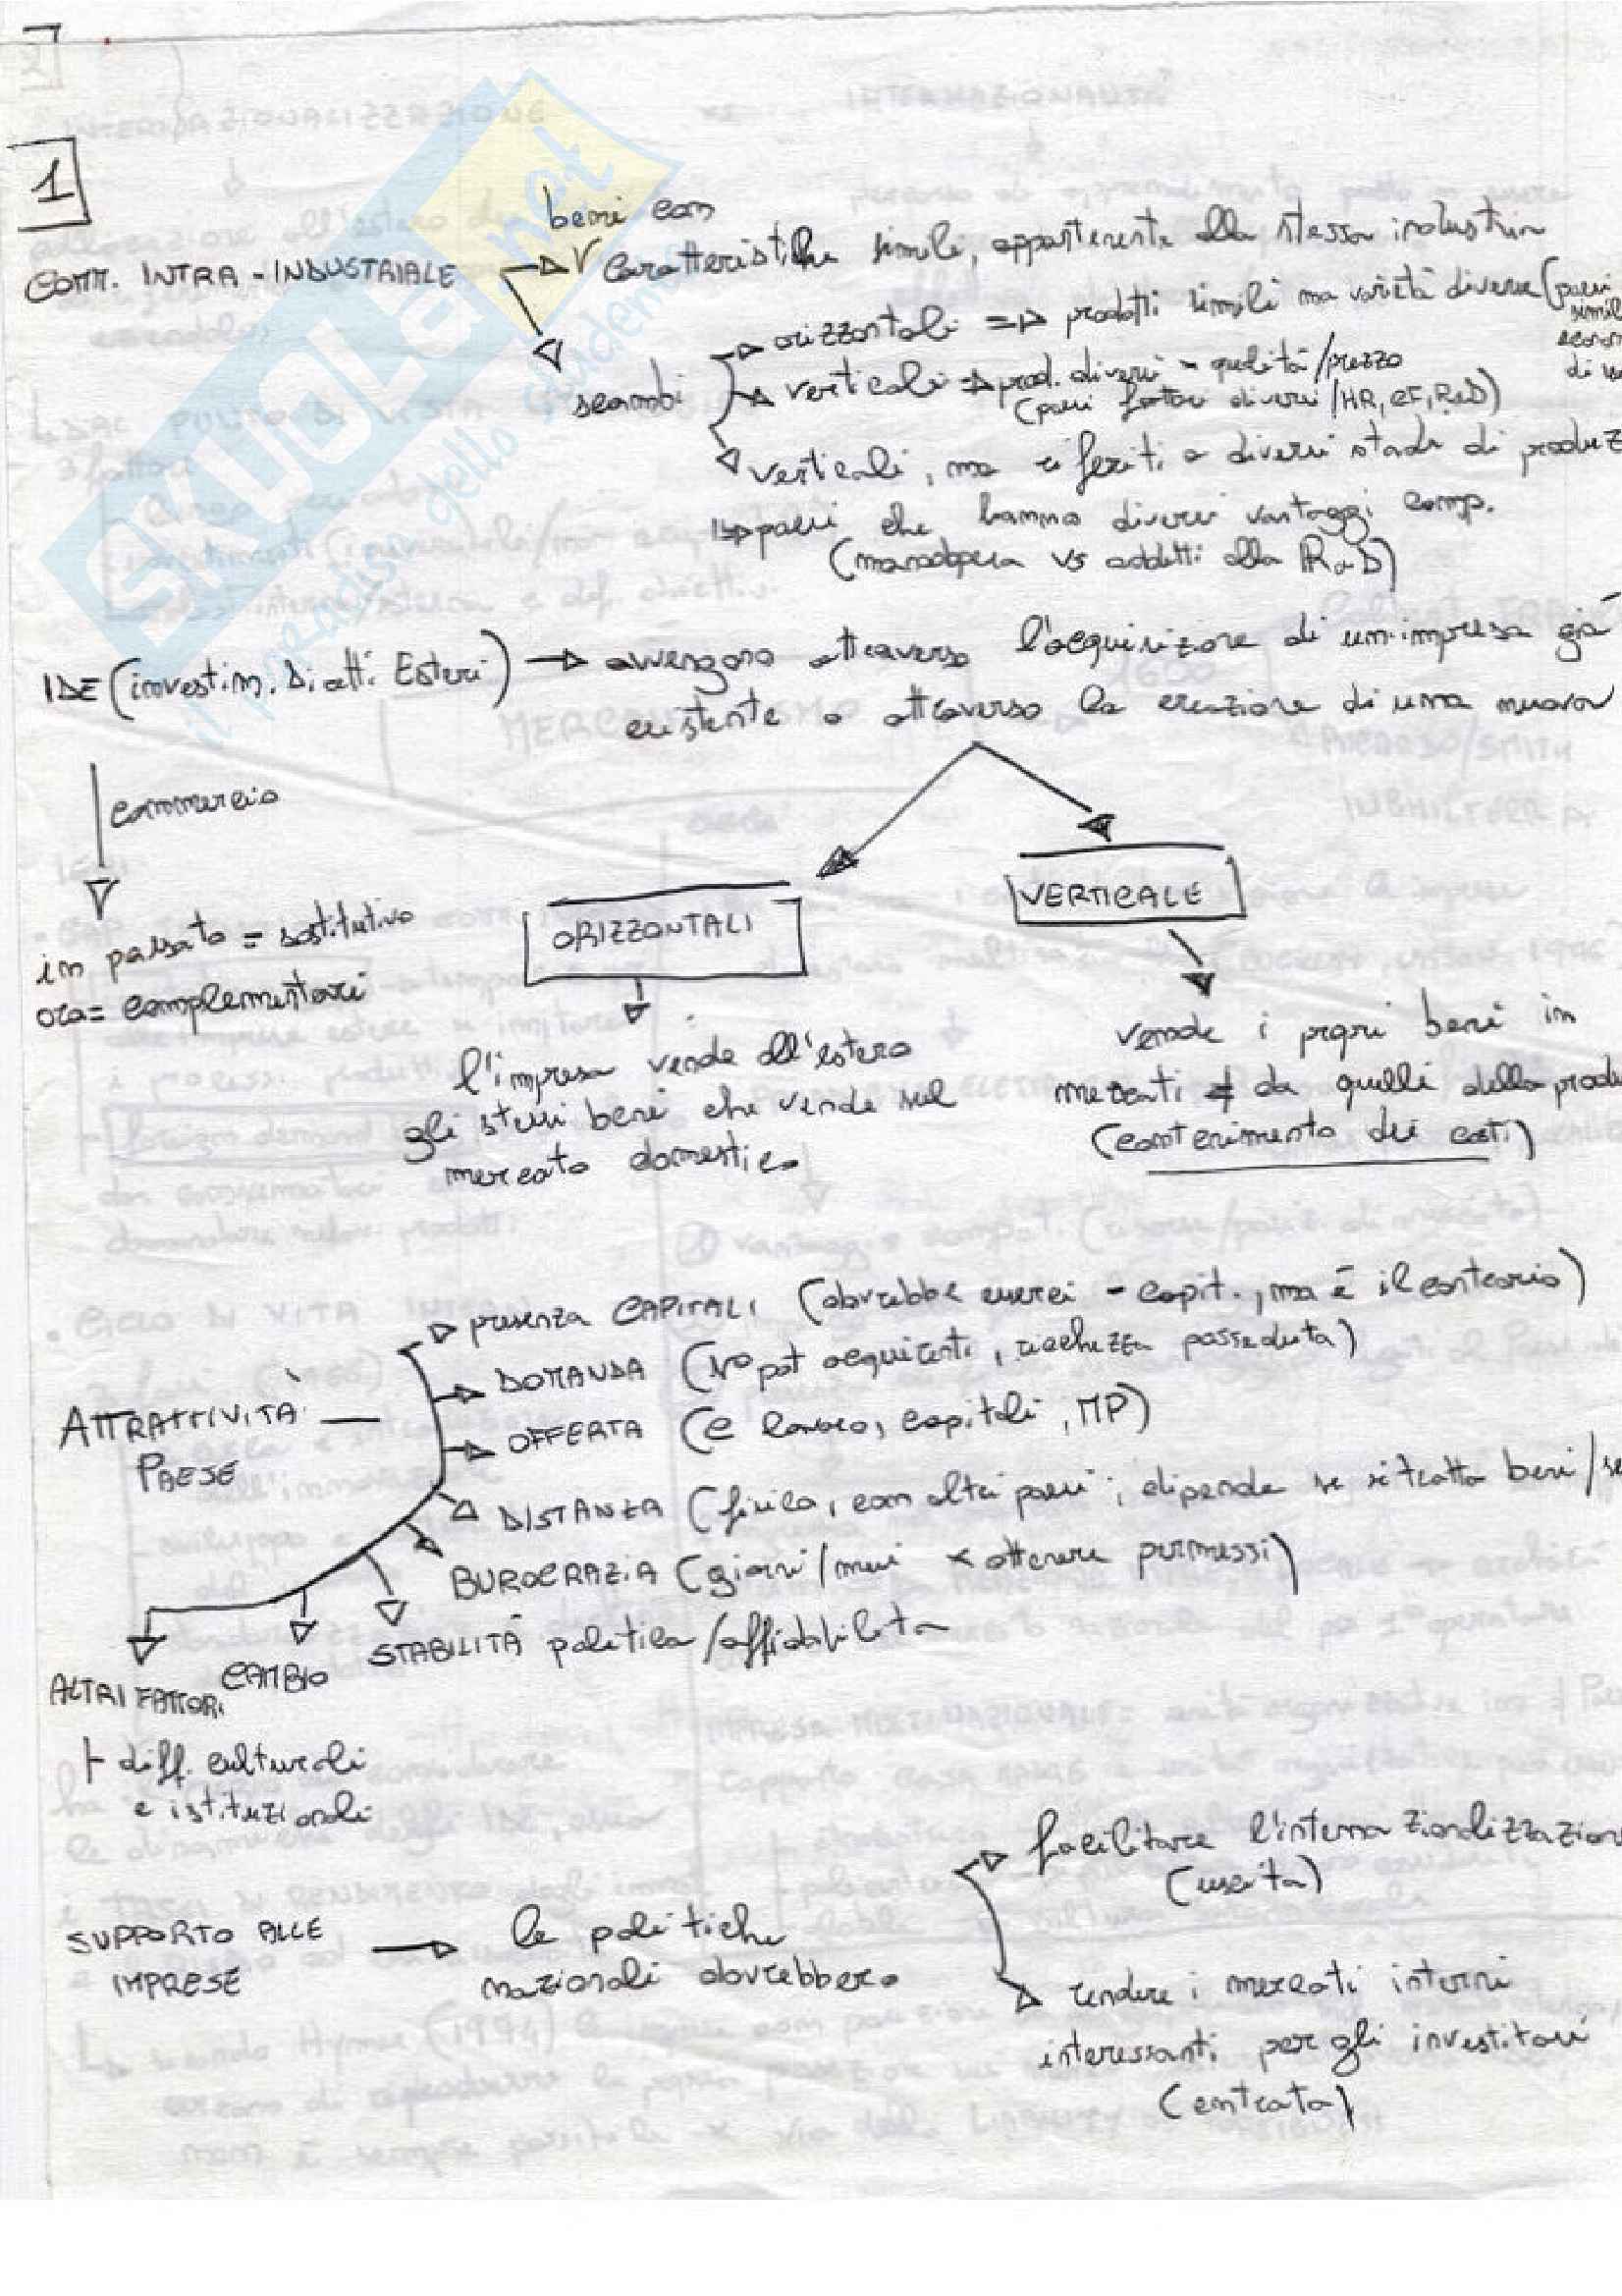 1
beni con
COMM. INTRA-INDUSTRIALE → caratteristiche simili, appartenente alla stessa industria
scambi
orizzontali => prodotti simili ma varietà diverse (paesi
simil
econom
di
verticali => prod. diversi - qualità/prezzo
(paesi fattori diversi/HR, CF, R&D)
verticali, ma riferiti a diversi stadi di produz
=> paesi che hanno diversi vantaggi comp.
(manodopera vs addetti alla R&D)
IDE (investim. Diretti Esteri) → avvengono attraverso l'acquisizione di un'impresa già
esistente o attraverso la creazione di una nuova
commercio
in passato = sostitutivo
ora = complementari
ORIZZONTALI
VERTICALE
l'impresa vende all'estero
gli stessi beni che vende sul
mercato domestico
vende i propri beni in
mercati ≠ da quelli della produ
(contenimento dei costi)
ATTRATTIVITÀ
PAESE
presenza CAPITALI (dovrebbe esserci - capit., ma è il contrario)
DOMANDA (N° pot acquirenti, ricchezza posseduta)
OFFERTA (e lavoro, capitali, MP)
DISTANZA (fisica, con altri paesi; dipende se si tratta beni/se
BUROCRAZIA (giorni/mesi x ottenere permessi)
STABILITÀ politica/affidabilità
CAMBIO
ALTRI FATTORI
diff. culturali
e istituzionali
SUPPORTO ALLE
IMPRESE
→ le politiche
nazionali dovrebbero
facilitare l'internazionalizzazion
(uscita)
rendere i mercati interni
interessanti per gli investitori
(entrata)
SKUOLA.net
il paradiso dello studente